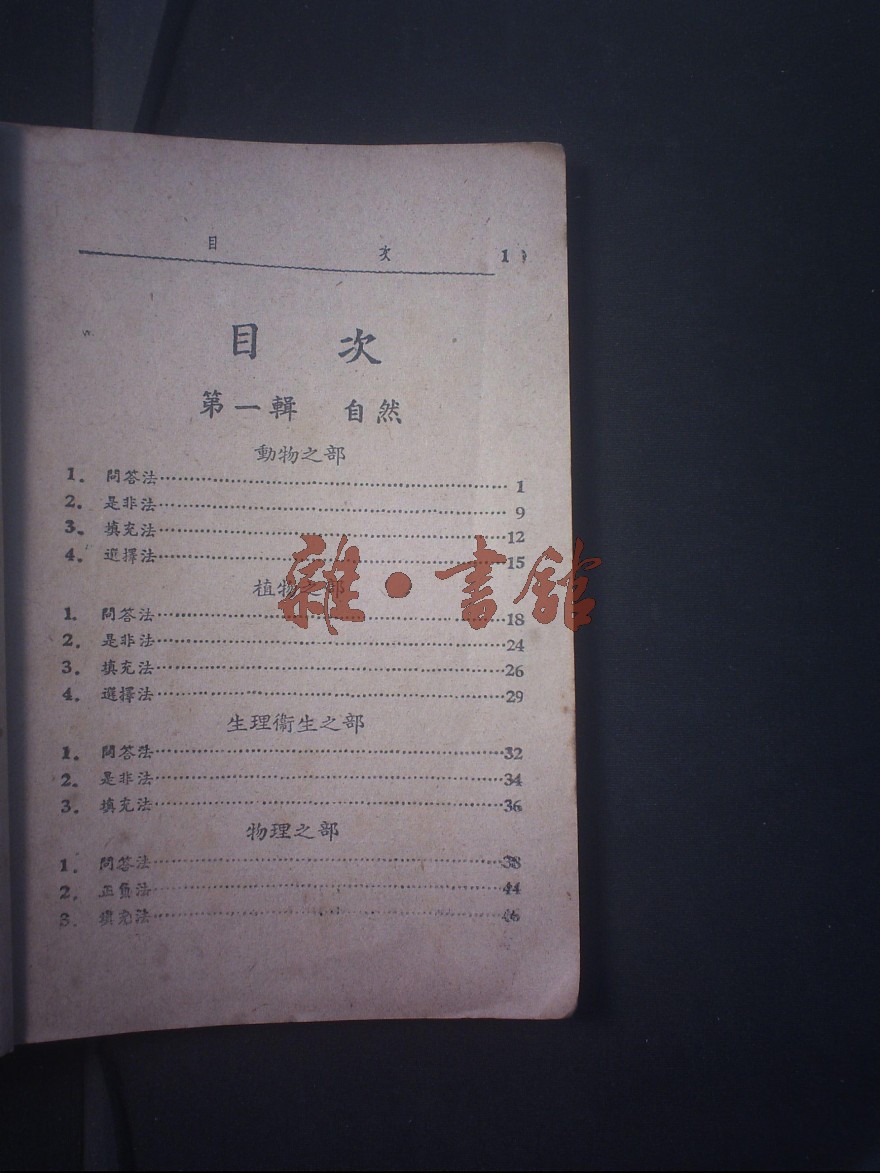 目 次 1
目 次
第一輯 自然
動物之部
1. 問答法 1
2. 是非法 9
3. 填充法 12
4. 選擇法 15
植物之部
1. 問答法 18
2. 是非法 24
3. 填充法 26
4. 選擇法 29
生理衞生之部
1. 問答法 32
2. 是非法 34
3. 填充法 36
物理之部
1. 問答法 38
2. 正負法 44
3. 填充法
雜·書館